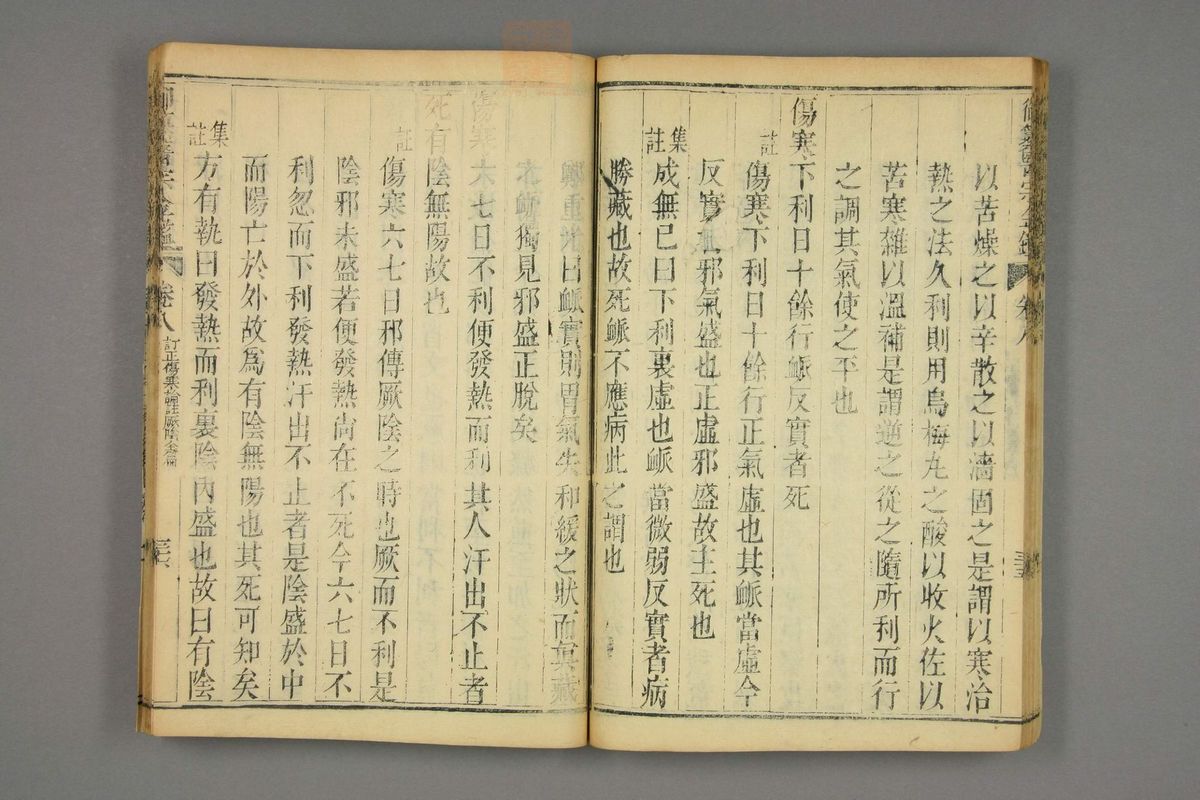 以苦燥之以辛散之以濇固之是謂以寒治
熱之法久利則用烏梅丸之酸以收火佐以
苦寒雜以溫補是謂逆之從之隨所利而行
之調其氣使之平也
傷寒下利日十餘行脈反實者死
註
傷寒下利日十餘行正氣虛也其脈當虛今
反實者邪氣盛也正虛邪盛故主死也
集註
成無已曰下利裏虛也脈當微弱反實者病
勝藏也故死脈不應病此之謂也
鄭重光曰脈實則胃氣失和緩之狀而眞藏
之脈獨見邪盛正脫矣
傷寒六七日不利便發熱而利其人汗出不止者
死有陰無陽故也
註
傷寒六七日邪傳厥陰之時也厥而不利是
陰邪未盛若便發熱尚在不死今六七日不
利忽而下利發熱汗出不止者是陰盛於中
而陽亡於外故爲有陰無陽也其死可知矣
集註
方有執曰發熱而利裏陰內盛也故曰有陰
御纂醫宗金鑑
卷八
訂正傷寒論註厥陰全篇